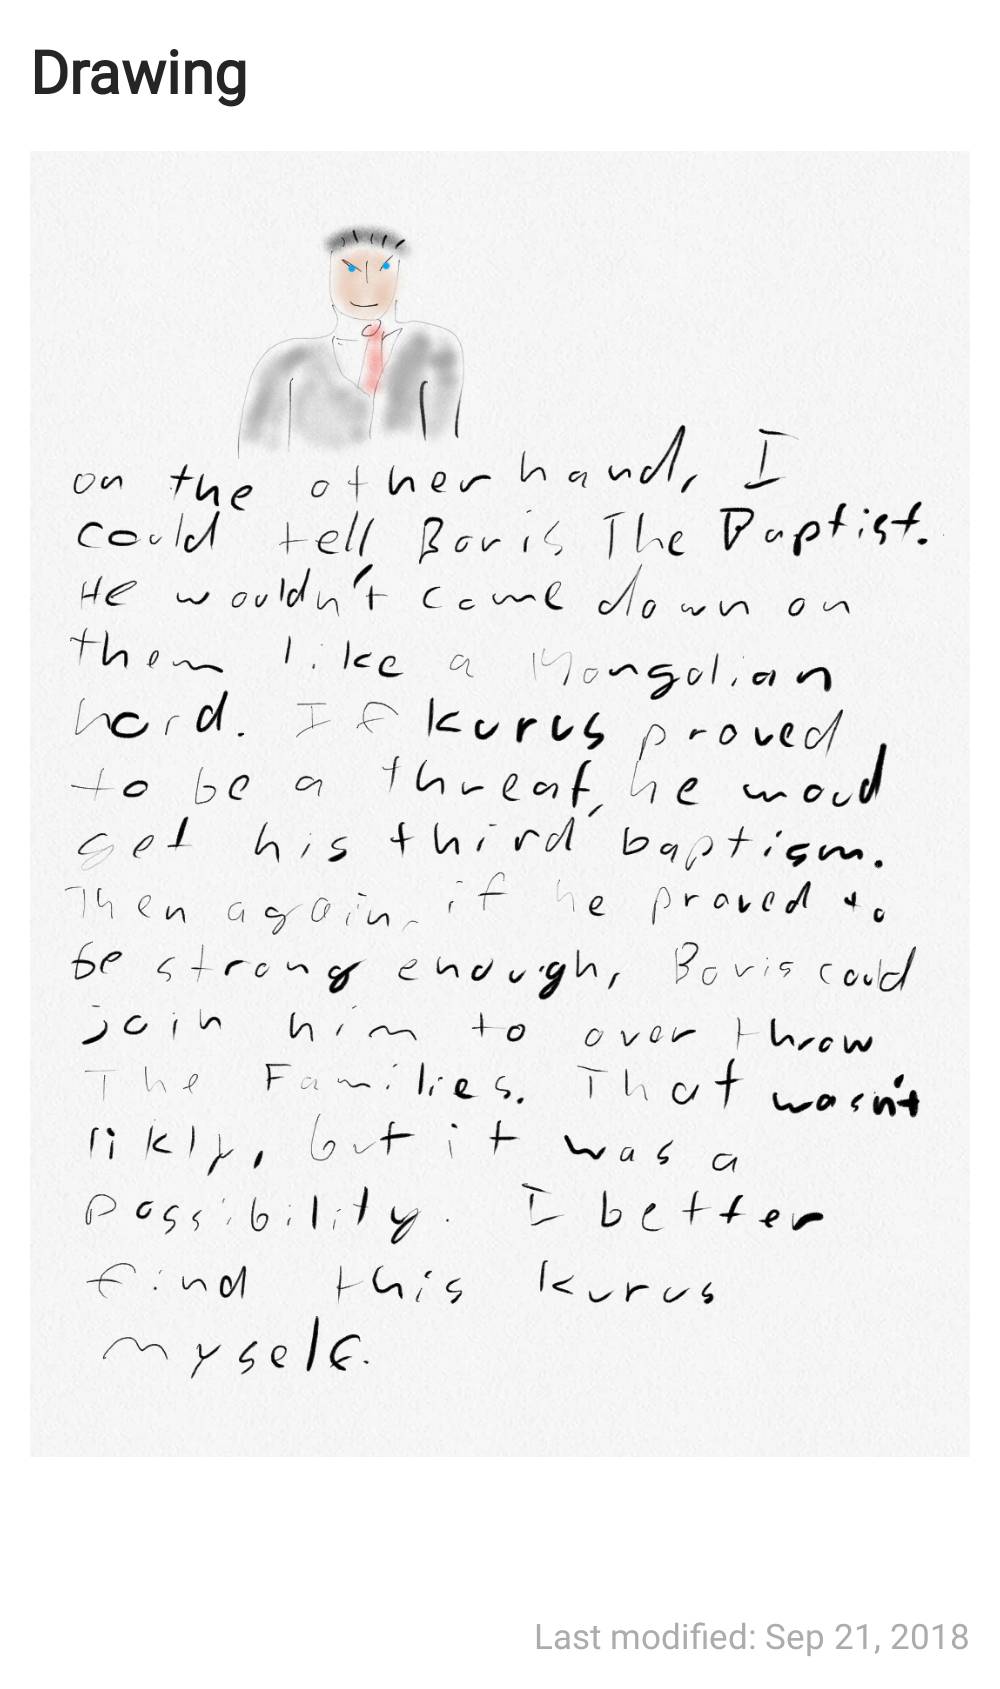 Drawing
on the other hand, I
could tell Boris The Baptist.
He wouldn't come down on
them like a Mongolian
hord. If Kurus proved
to be a threat, he woud
get his third baptism.
Then again, if he proved to
be strong enough, Boris could
join him to over throw
The Families. That wasn't
likly, but it was a
possibility. I better
find this Kurus
myself.
Last modified: Sep 21, 2018